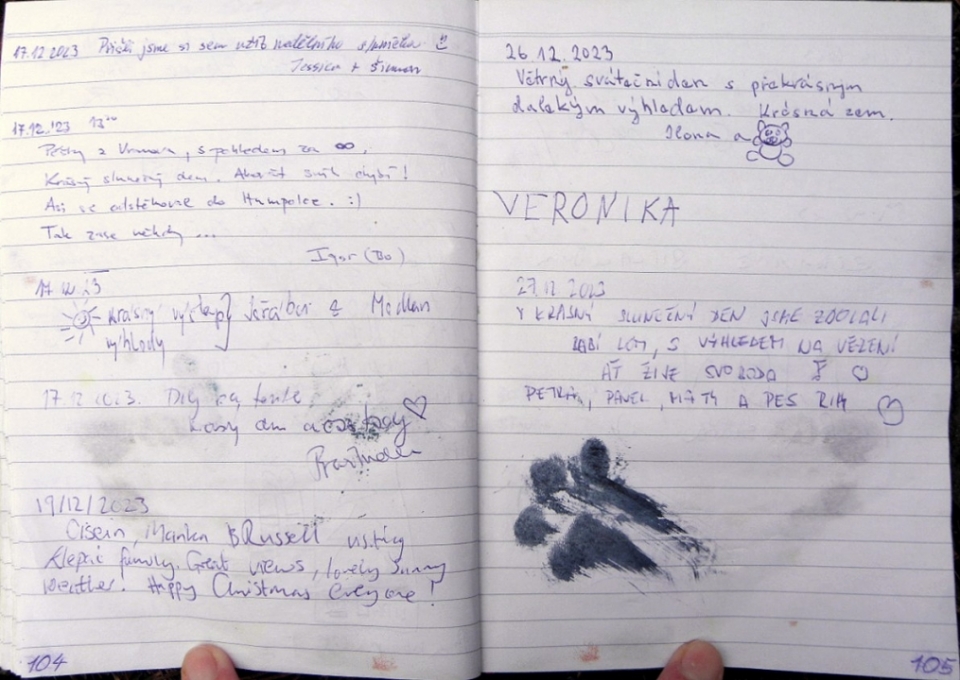 17.12 2023 Přišli jsme si sem užít nedělního sluníčka
Jessica + Šimon
17.12.'23 13⁰⁰
Petry z Vranan, s pohledem za ∞.
Krásný slunečný den. Akorát sníh chybí!
Asi se odstěhove do Humpolce. :)
Tak zase někdy ...
Igor (Bo)
17.12.23
krásný výstup
výhledy
z Modřan
17.12.2023. Díky za
krásný den a
19/12/2023
Oisein, Marika & Russell
family. Great views, lovely sunny
weather. Happy Christmas everyone!
104
26.12.2023
Větrný sváteční den s překrásným
dalekým výhledem. Krásná zem.
Ilona a
VERONIKA
27.12 2023
V KRÁSNÝ SLUNEČNÝ DEN JSME ZDOLALI
LOM, S VÝHLEDEM NA VĚZENÍ
AŤ ŽIJE SVOBODA ♡
PETRA, PAVEL, MÁTY A PES
105